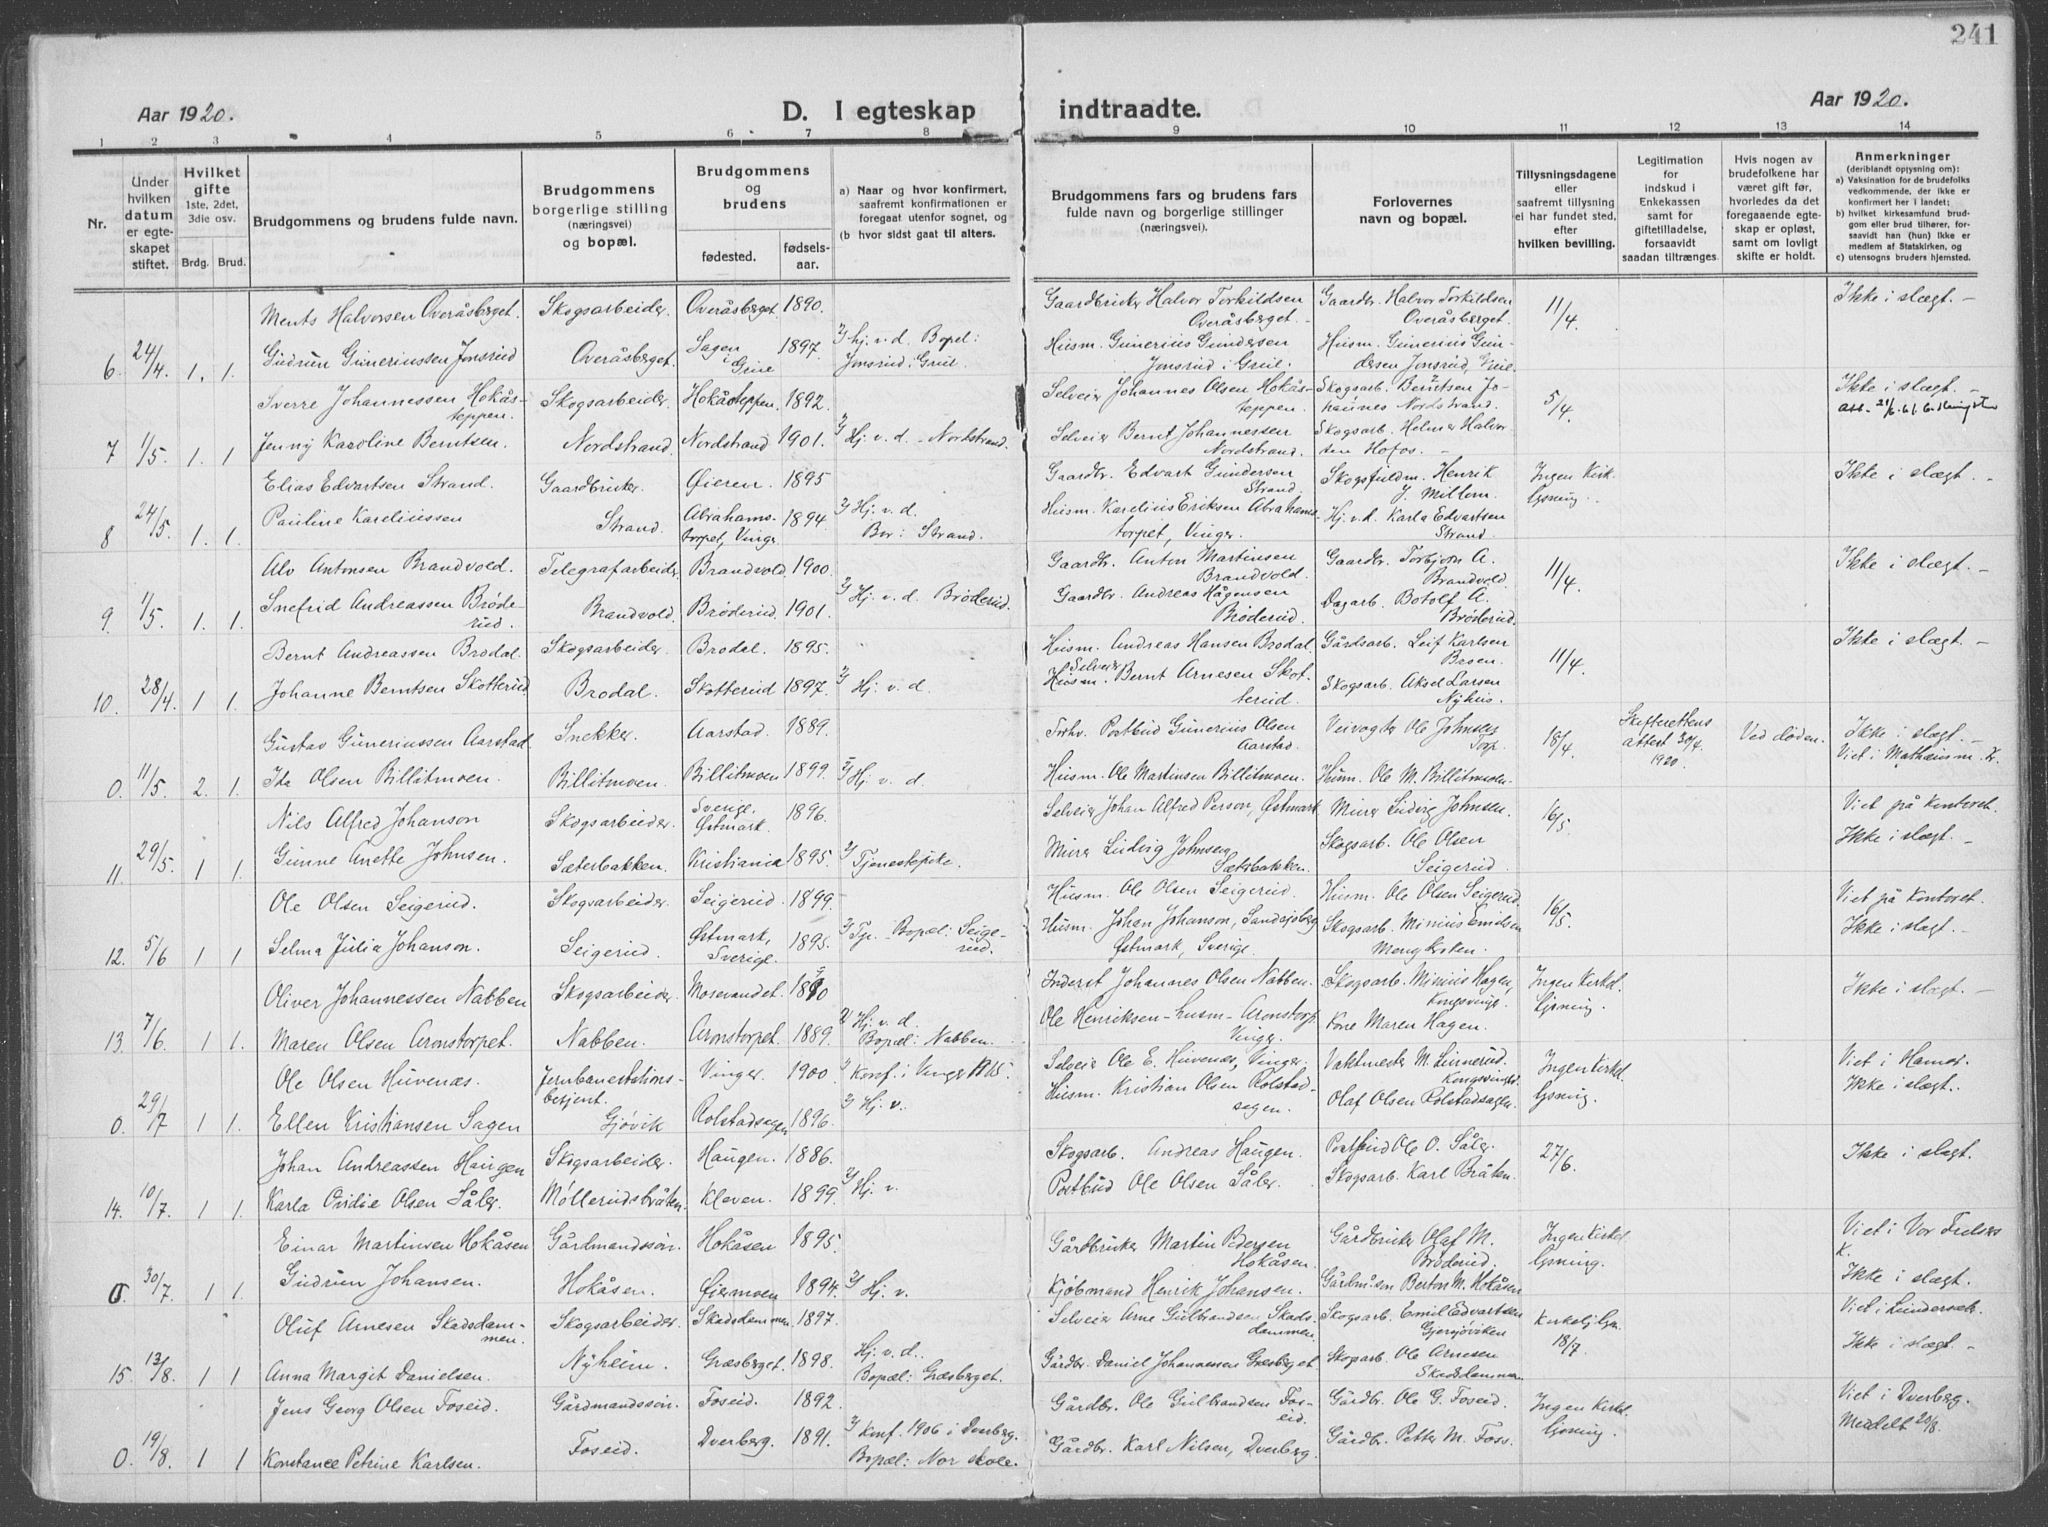 241
Aar 1920. D. I egteskap indtraadte. Aar 1920.
1 2 3 4 5 6 7 8 9 10 11 12 13 14
Nr.
Under hvilken datum er egteskapet stiftet.
Hvilket gifte 1ste, 2det, 3die osv.
Brdg. Brud.
Brudgommens og brudens fulde navn.
Brudgommens borgerlige stilling (næringsvei) og bopæl.
Brudgommens og brudens
fødested. fødselsaar.
a) Naar og hvor konfirmert, saafremt konfirmationen er foregaat utenfor sognet, og
(b hvor sidst gaat til alters.
Brudgommens fars og brudens fars fulde navn og borgerlige stillinger (næringsvei).
Forlovernes navn og bopæl.
Tillysningsdagene eller saafremt tillysning ei har fundet sted, efter hvilken bevilling.
Legitimation for indskud i Enkekassen samt for giftetilladelse, forsaavidt saadan tiltrænges.
Hvis nogen av brudefolkene har været gift før, hvorledes da det foregaaende egteskap er opløst, samt om lovligt skifte er holdt.
Anmerkninger (deriblandt opjysning om): a) Vaksination for de brudefolks vedkommende, der ikke er konfirmert her i landet; b) hvilket kirkesamfund brudgom eller brud tilhører, forsaavidt han (hun) ikke er medlem av Statskirken, og c) utensogns bruders hjemsted.
Ments Halvorsen Overåsberget. Skogsarbeider. Overåsberget. 1890. Gaardbruker Halvor Torkildsen Overåsberget. Gaardbr. Halvor Torkildsen Overåsberget. 11/4. Ikke i slægt.
6. 24/4. 1. 1. Gudrun Guneriussen Jonsrud Overåsberget. Sagen i Grue 1897. 2/ hj. v. d. Bopel: Jonsrud i Grue. Husm. Gunerius Gundersen Jonsrud i Grue. Husm. Gunerius Gundersen Jonsrud, Grue.
Sverre Johannessen Hokåsteppen. Skogsarbeider. Hokåsteppen. 1892. Selveier Johannes Olsen Hokåsteppen. Skogsarb. Berntsen Johannes Nordstrand. 5/4. Ikke i slægt.
7 1/5. 1. 1 Jenny Karoline Berntsen. Nordstrand. Nordstrand 1901. 2/ Hj. v. d. - Nordstrand. Selveier Bernt Johannessen Nordstrand. Skogsarb. Helmer Halvorsen Hofos.
Elias Edvartsen Strand. Gaardbruker. Øieren. 1895 Gaardbr. Edvart Gundersen Strand. Skogsfuldm. Henrik J. Mellem. Ingen Kirk. lysning. Ikke i slægt.
8 24/5. 1. 1. Pauline Kareliussen Strand. Abrahamstorpet, Vinger 1894. 2/ Hj. v. d. Bor: Strand. Husm. Karelius Eriksen Abrahamstorpet, Vinger. Hj. v. d. Karla Edvartsen Strand.
Alv Antonsen Brandvold. Telegrafarbeider. Brandvold. 1900. Gaardbr. Anton Martinsen Brandvold. Gaardbr. Torbjørn A. Brandvold. 11/4. Ikke i slægt.
9. 1/5. 1. 1. Snefrid Andreassen Brøderud. Brandvold. Brøderud. 1901. 2/ Hj. v. d. Brøderud. Gaardbr. Andreas Hågensen Brøderud. Dagarb. Botolf A. Brøderud.
Bernt Andreassen Brodal. Skogsarbeider. Brodel. 1895. Husm. Andreas Hansen Brodal Gårdsarb. Leif Karlsen Broen. 11/4 Ikke i slægt.
10. 28/4. 1 1. Johanne Berntsen Skotterud. Brodal. Skotterud 1897. 2/ Hj. v. d. Selveier Husm. Bernt Arnesen Skotterud. Skogsarb. Aksel Larsen Nyhus.
Gustav Guneriussen Aarstad. Snekker. Aarstad. 1889. Forhv. Postbud Gunerius Olsen Aarstad. Veivogter Ole Johnsen Torp. 18/4 Skifterettens attest 30/4. 1920. Ved døden. Ikke i slægt.
0. 11/5. 2. 1. Ida Olsen Billitmoen. Billitmoen. Billitmoen 1899. 2/ Hj. v. d. Husm. Ole Martinsen Billitmoen. Husm. Ole M. Billitmoen. Viet i Mathæus m. K.
Nils Alfred Johanson Skogsarbeider. Sverige. Østmark. 1896. Selveier Johan Alfred Person, Østmark. Murer Ludvig Johnsen. 16/5. Viet på kontoret.
11. 29/5. 1 1. Gunne Anette Johnsen. Sæterbakken. Kristiania 1895. 2/ Tjenestepike. Murer Ludvig Johnsen Sæterbakken. Skogsarb. Ole Olsen Seigerud. Ikke i slægt.
Ole Olsen Seigerud. Skogsarbeider. Seigerud. 1899. Husm. Ole Olsen Seigerud. Husm. Ole Olsen Seigerud 16/5. Viet på kontoret.
12. 5/6 1 1 Selma Julia Johanson. Seigerud. Østmark, Sverige. 1895. 2/ Tje. Bopæl: Seigerud. Husm. Johan Johanson, Sandsjøberg Østmark, Sverige. Skogsarb. Minius Emilsen Mengkroken. Ikke i slægt.
Oliver Johannessen Nabben Skogsarbeider. Mosevandet. 1890 Inderst Johannes Olsen Nabben. Skogsarb. Minius Hagen, Kongsvinger. Ingen Kirkel. lysning. Ikke i slægt.
13. 7/6 1 1. Maren Olsen Aronstorpet. Nabben. Aronstorpet. 1889. 2/ Hj. v. d. Bopæl: Nabben. Ole Henriksen - husm - Aronstorp. Vinger. Kone Maren Hagen.
Ole Olsen Huvenæs. Jernbanestationsbetjent. Vinger. 1900. Konf. i Vinger 1915. Selveier Ole E. Huvenæs, Vinger. Vaktmester M. Linnerud. Kongsvinger. Ingen Kirkel. lysning. Viet i Hamar.
0. 29/7 1 1. Ellen Kristiansen Sagen Gjøvik Rolstadsagen 1896. 2/ Hj. v. Husm. Kristian Olsen Rolstadsagen. Olaf Olsen Rolstadsagen. Ikke i slægt.
Johan Andreassen Haugen Skogsarbeider. Haugen. 1886. Skogsarb. Andreas Haugen. Postbud Ole O. Såler. 27/6. Ikke i slægt.
14. 10/7. 1 1. Karla Ovidie Olsen Såler. Møllerudsbråten Kleven. 1899. 2/ Hj. v. Postbud Ole Olsen Såler. Skogsarb. Karl Bråten.
Einar Martinsen Hokåsen Gårdmandssøn. Hokåsen 1895. Gårdbruker Martin Pedersen Hokåsen. Gårdbruker Olaf M. Brøderud. Ingen Kirkel. lysning. Viet i Vor Frelsers K.
0. 30/7. 1 1. Gudrun Johansen. Hokåsen. Øiermoen 1894. 2/ Hj. v. Kjøbmand Henrik Johansen. Gårdm.søn Berton M. Hokåsen Ikke i slægt.
Oluf Arnesen Skadsdammen. Skogsarbeider. Skadsdammen. 1897. Selveier Arne Gulbrandsen Skadsdammen. Skogsarb. Emil Edvartsen Gjersjøviken Kirkelig lysn. 18/7. Viet i Lundersæt.
15. 13/8. 1 1 Anna Margit Danielsen. Nyheim. Græsberget. 1898. Hj. v. d. Bopæl: Græsberget. Gårdbr. Daniel Johannessen Græsberget. Skogsarb. Ole Arnesen Skadsdammen Ikke i slægt.
Jens Georg Olsen Foseid. Gårdmandssøn. Foseid. 1892. Gårdbr. Ole Gulbrandsen Foseid. Gårdbr. Ole G. Foseid. Ingen Kirkel. lysning. Viet i Dverberg.
0. 19/8. 1 1 Konstance Petrine Karlsen. Foseid. Dverberg. 1891. 2/ Konf. 1906 i Dverberg. Bopæl: Nor skole. Gårdbr. Karl Nilsen, Dverberg. Gårdbr. Petter M. Foss. Meddelt 20/8.